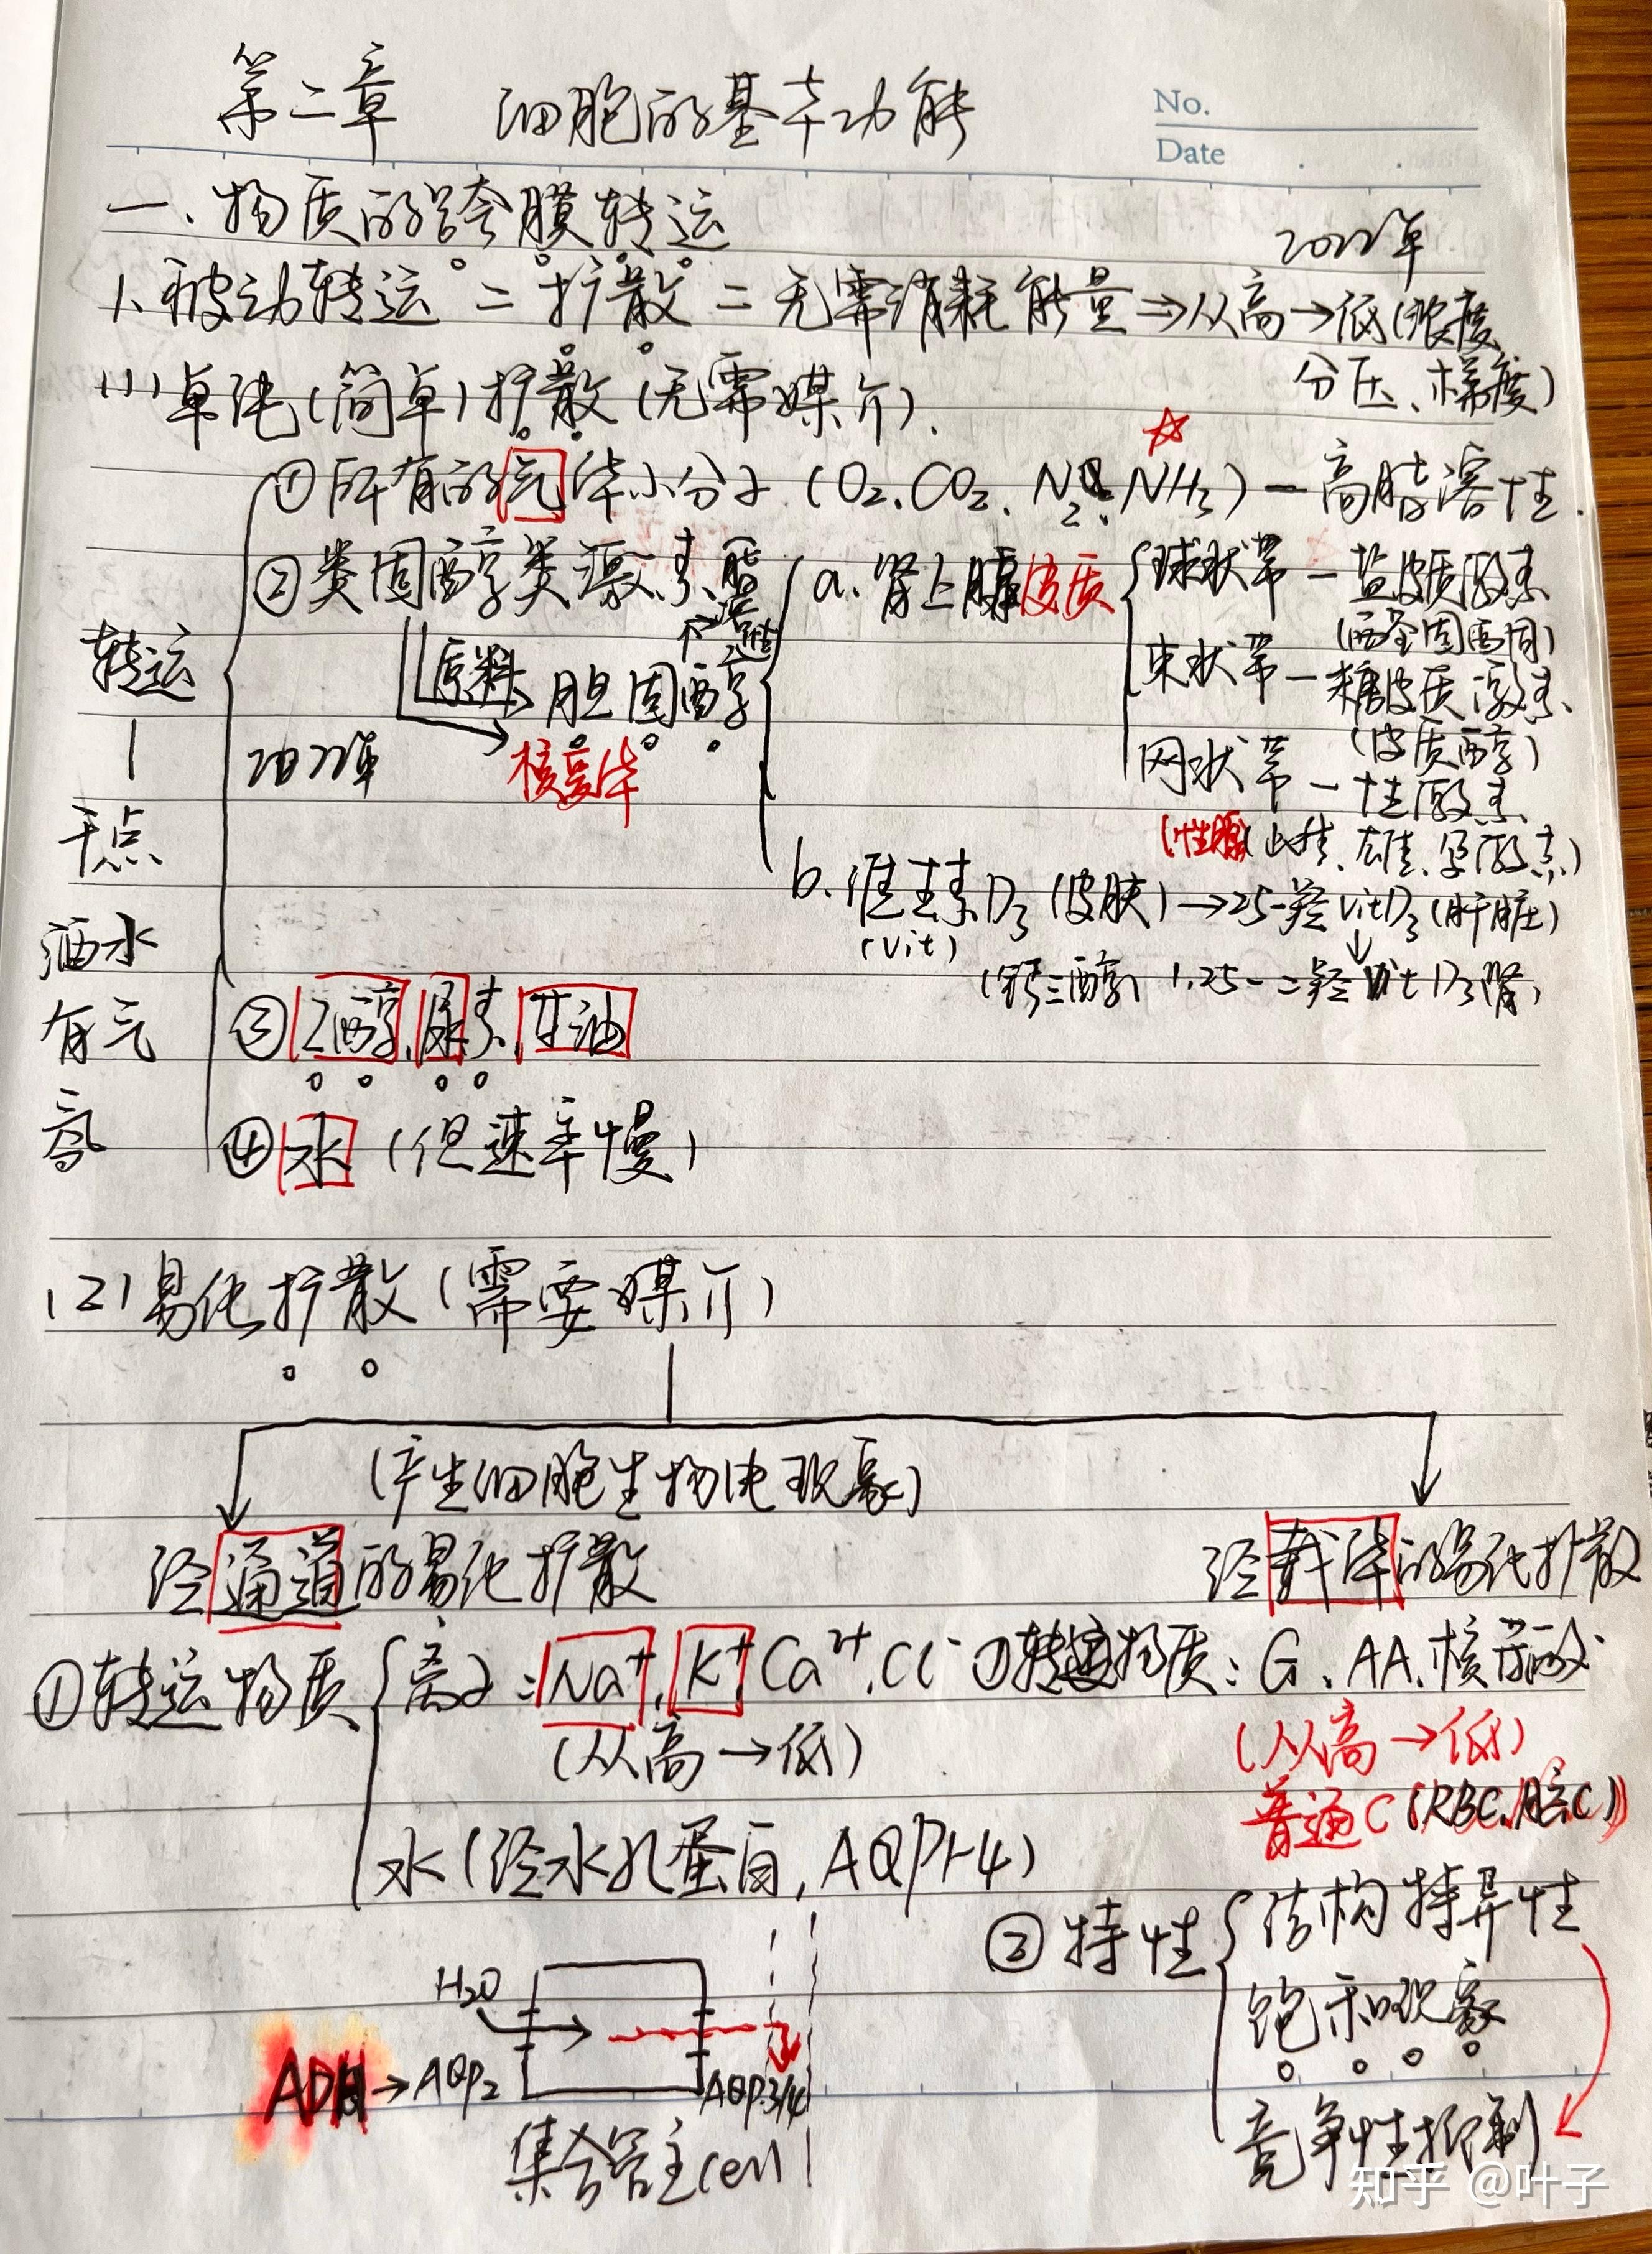 第二章 细胞的基本功能
No.
Date
一、物质的跨膜转运
2022年
1、被动转运 = 扩散 = 无需消耗能量 ⇒ 从高→低(浓度、
分压、梯度)
(1)单纯(简单)扩散(无需媒介).
☆
①所有的气体小分子(O₂、CO₂、N₂、NH₃)—高脂溶性.
②类固醇类激素
a. 肾上腺皮质
球状带—盐皮质激素
(醛固酮)
束状带—糖皮质激素
(皮质醇)
网状带—性激素
(性腺)
原料→胆固醇
核受体
2022年
b. 维生素D₃(皮肤)→25-羟VitD₃(肝脏)
(Vit)
↓
(钙三醇) 1.25-二羟Vit D₃肾)
转运
干点
洒水
有元
③乙醇、尿素、甘油
④水(但速率慢)
(2)易化扩散(需要媒介)
(产生细胞生物电现象)
经通道的易化扩散
经载体的易化扩散
①转运物质
离子:Na⁺、K⁺、Ca²⁺、Cl⁻
(从高→低)
水(经水孔蛋白,AQP1-4)
H₂O
ADH→AQP2
AQP3/4
集合管主cell
①转运物质:G、AA、核苷酸
(从高→低)
普通C(RBC、脑C)
②特性
结构特异性
饱和现象
竞争性抑制
知乎 @叶子